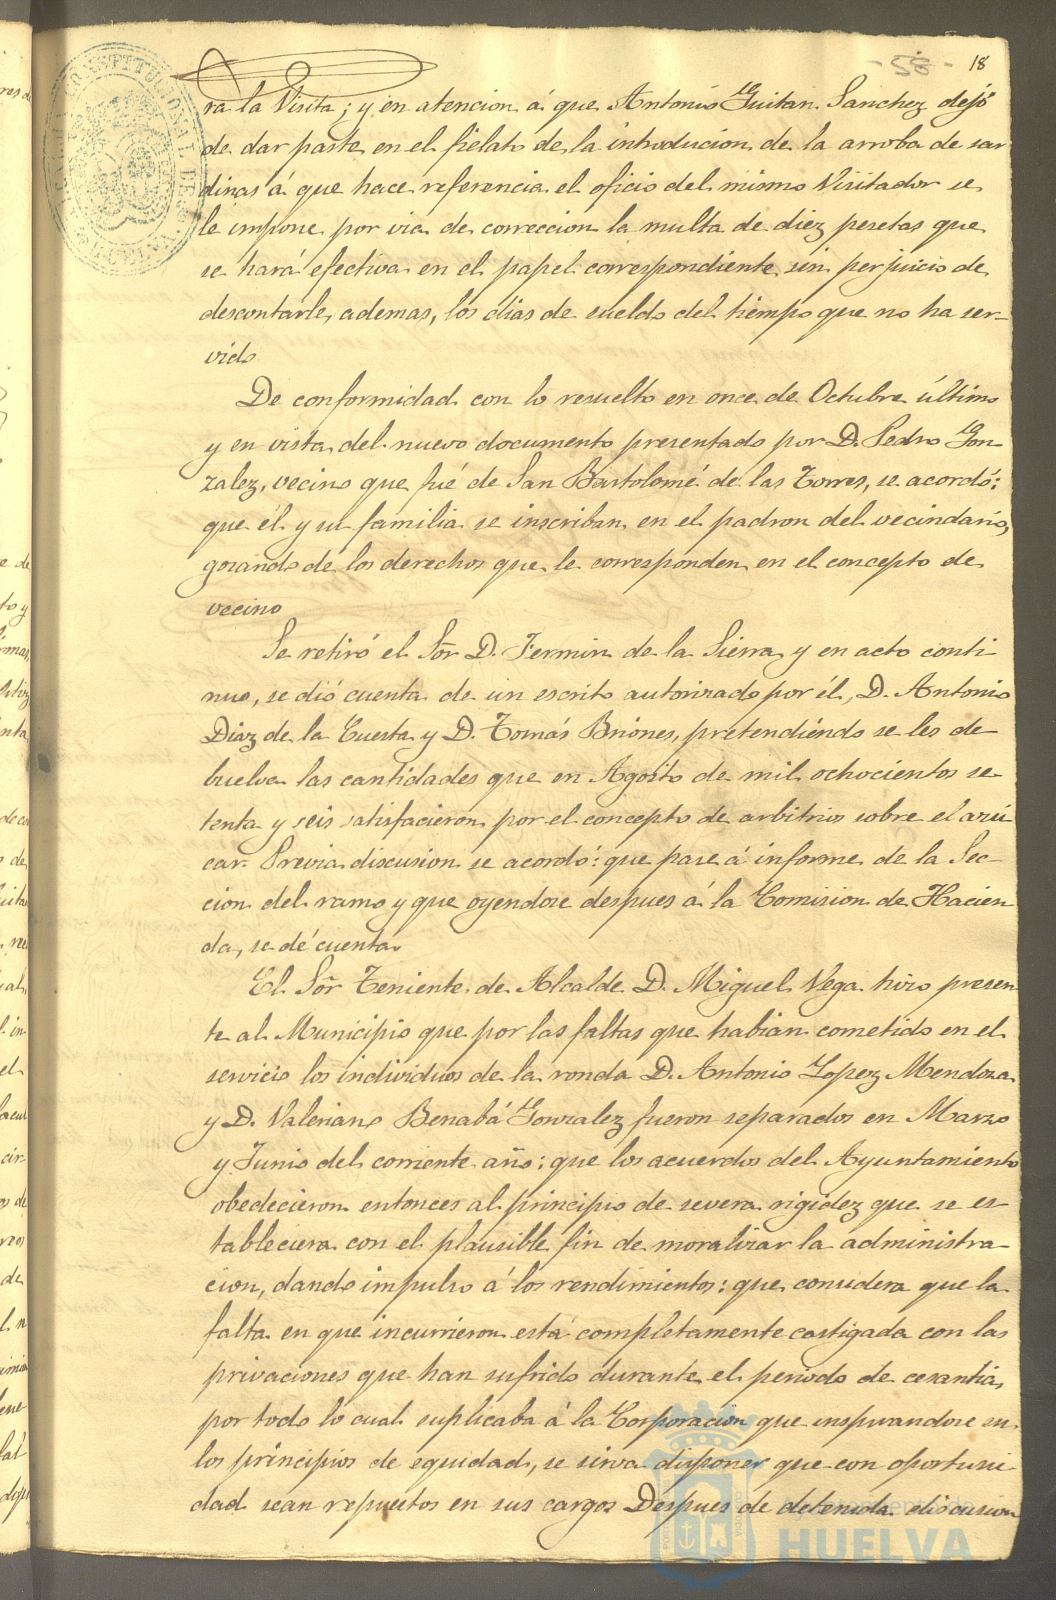 - 58 - 18
ra la Visita; y en atencion á que Antonio Guitan Sanchez dejó
de dar parte en el fielato de la introducion de la arroba de sar
dinas á que hace referencia el oficio del mismo Visitador se
le impone por via de correccion la multa de diez pesetas que
se hará efectiva en el papel correspondiente sin perjuicio de
descontarle ademas, los dias de sueldo del tiempo que no ha ser-
vido
De conformidad con lo resuelto en once de Octubre último
y en vista del nuevo documento presentado por D. Pedro Gon
zalez, vecino que fué de San Bartolomé de las Torres, se acordó:
que él y su familia se inscriban en el padron del vecindario,
gozando de los derechos que le corresponden en el concepto de
vecino
Se retiró el Sõr D. Fermin de la Sierra y en acto conti-
nuo, se dió cuenta de un escrito autorizado por él, D. Antonio
Diaz de la Cuesta y D. Tomás Briones, pretendiendo se les de-
buelva las cantidades que en Agosto de mil ochocientos se-
tenta y seis satisfacieron por el concepto de arbitrios sobre el azú
car. Previa discusion se acordó: que pase á informe de la Sec-
cion del ramo y que oyendose despues á la Comision de Hacien
da, se dé cuenta
El Sõr Teniente de Alcalde D. Miguel Vega hizo presen-
te al Municipio que por las faltas que habian cometido en el
servicio los individuos de la ronda D. Antonio Lopez Mendoza
y D. Valeriano Benabá Gonzalez fueron separados en Marzo
y Junio del corriente año: que los acuerdos del Ayuntamiento
obedecieron entonces al principio de severa rigidez que se es-
tableciera con el plausible fin de moralizar la administra-
cion, dando impulso á los rendimientos: que considera que la
falta en que incurrieron está completamente castigada con las
privaciones que han sufrido durante el periodo de cesantia,
por todo lo cual suplicaba á la Corporacion que inspirandose en
los principios de equidad, se sirva disponer que con oportuni
dad sean repuestos en sus cargos Despues de detenida discusion
HUELVA